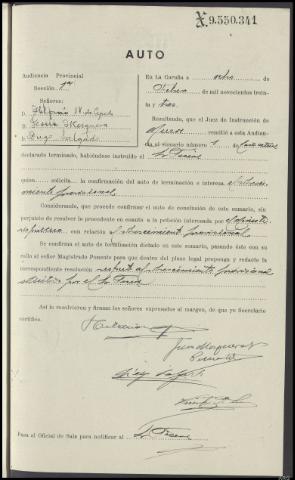 X.9.550.341
AUTO
Audiencia Provincial
Sección 1ª
Señores:
D.
D.
D. Diego Salgado
En La Coruña a ocho de
Febrero de mil novecientos trein-
ta y tres.
Resultando, que el Juez de Instrucción de
remitió a esta Audien-
cia el sumario número
declarado terminado, habiéndose instruído el Sr. Fiscal
quien solicita la confirmación del auto de terminación e interesa el sobresei-
miento provisional
Considerando, que procede confirmar el auto de conclusión de este sumario, sin
perjuicio de resolver lo procedente en cuanto a la petición interesada por el
con relación al sobreseimiento provisional
Se confirma el auto de terminación dictado en este sumario, pasando éste con su
rollo al señor Magistrado Ponente para que dentro del plazo legal proponga y redacte la
correspondiente resolución respecto al sobreseimiento provisional
por el Sr. Fiscal
Así lo resolvieron y firman los señores expresados al margen, de que yo Secretario
certifico.
Para el Oficial de Sala para notificar al Sr. Fiscal